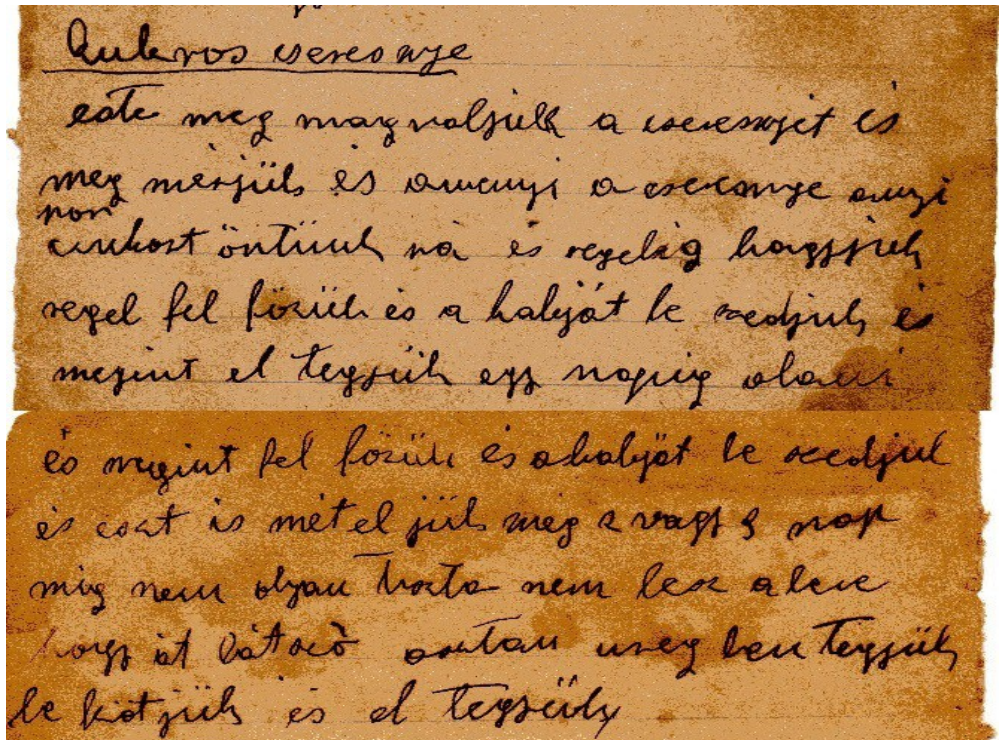 Cukros cseresnye
este meg magvaljuk a cseresnyét és
meg mérjük és amenyi a cseresnye anyi
por
cukort öntünk rá és regelig hagyjuk
regel fel főzük és a habját le szedjuk és
megint el tegyük egy napig
és megint fel fözük és a habját le szedjuk
és eszt is métel jük meg 2 vagy 3 nap
mig nem olyan tiszta nem lesz a leve
hogy át látszó osztan uveg ben tegyük
le kötjük és el tegyük